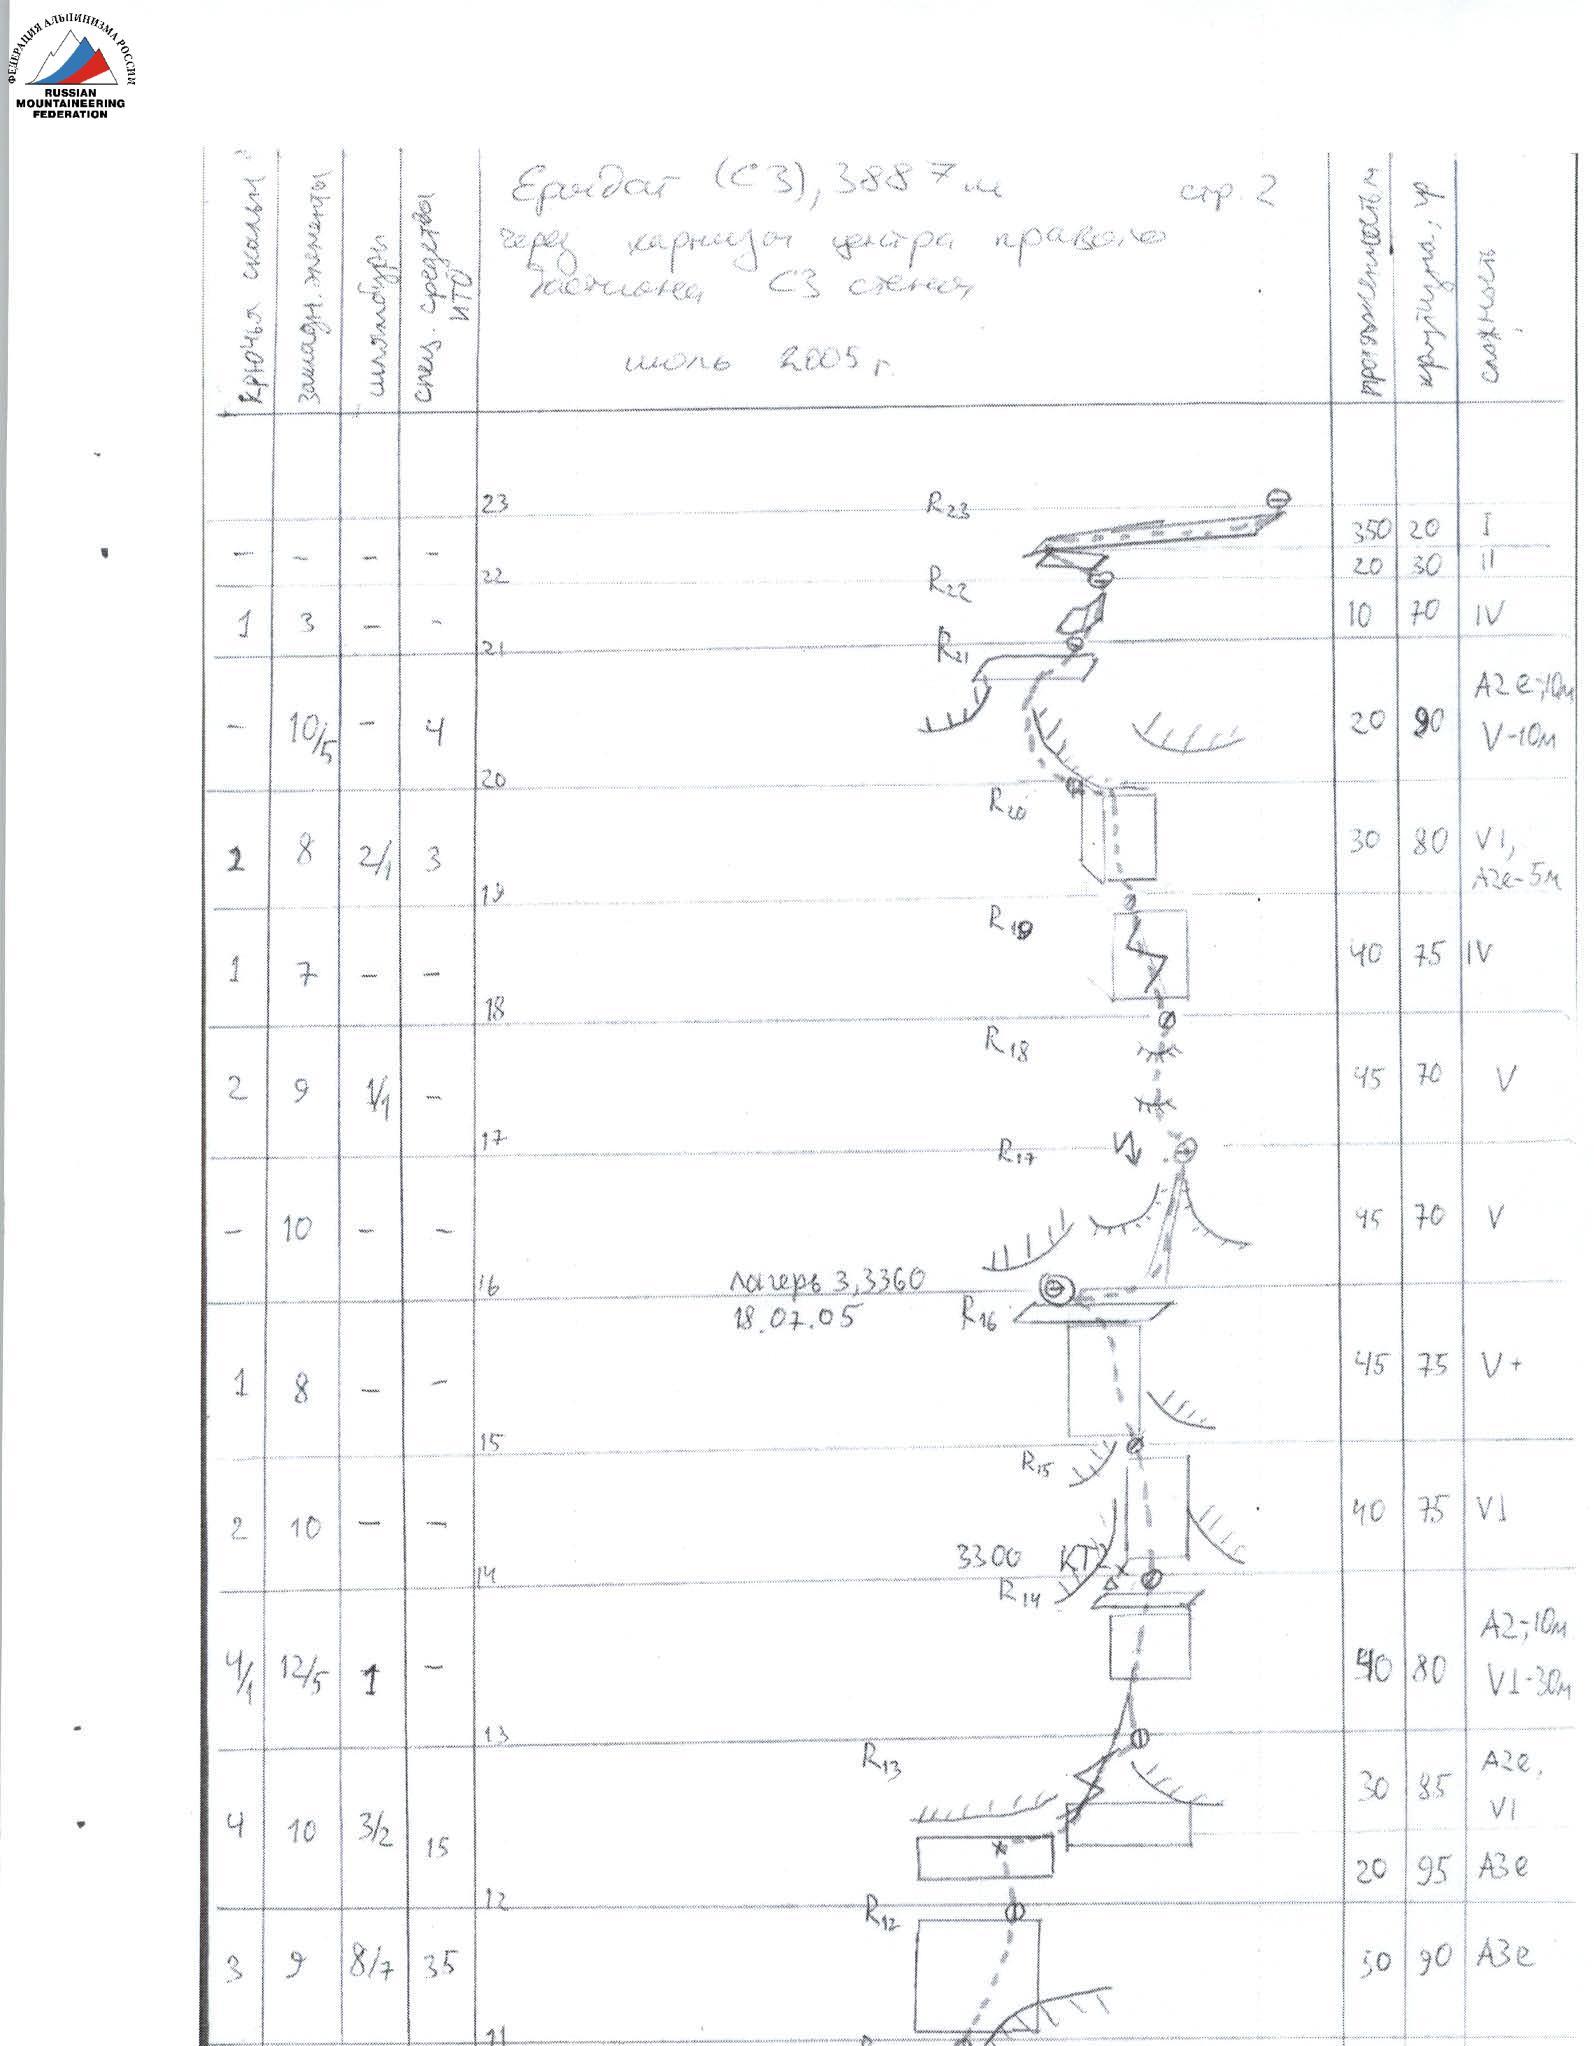 ФЕДЕРАЦИЯ АЛЬПИНИЗМА РОССИИ
RUSSIAN
MOUNTAINEERING
FEDERATION
Ерыдаг (СЗ), 3887 м стр. 2
через карнизы центра правого
бастиона СЗ стены
июль 2005 г.
крючья скальн
закладн. элементы
шлямбуры
спец. средства
ИТО
протяженность м
крутизна, гр
сложность
23 R23
– – – – 350 20 I
20 30 II
22 R22
1 3 – – 10 70 IV
21 R21
– 10/5 – 4 20 90 A2e-10м
V-10м
20 R20
2 8 2/1 3 30 80 VI,
A2e-5м
19 R19
1 7 – – 40 75 IV
18 R18
2 9 1/1 – 45 70 V
17 R17
– 10 – – 45 70 V
16 лагерь 3, 3360
18.07.05 R16
1 8 – – 45 75 V+
15 R15
2 10 – – 40 75 VI
3300 КТ
14 R14
4/1 12/5 1 – 40 80 A2-10м
VI-30м
13 R13
30 85 A2e,
VI
4 10 3/2 15
20 95 A3e
12 R12
3 9 8/7 35 50 90 A3e
11